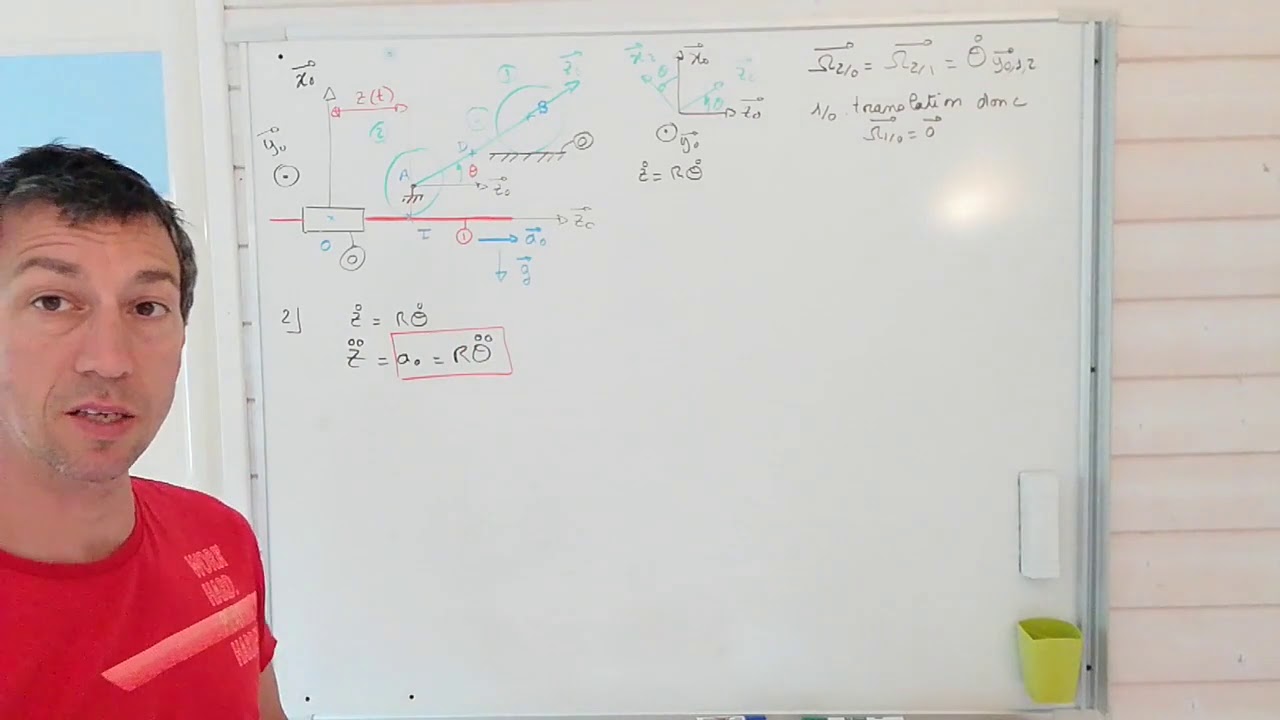 x₀→
z(t)
y₀→
A
D
B
θ
z₂→
z₀→
0
0
I
1
a₀→
z₀→
g→
x₂→
x₀→
θ
z₂→
θ
z₀→
y₀→
ż = Rθ̇
Ω₂/₀→ = Ω₂/₁→ = θ̇ y₀,₁,₂→
1/0 translation donc
Ω₁/₀→ = 0→
2]
ż = Rθ̇
z̈ = a₀ = Rθ̈
WORK
HARD.
HARDER